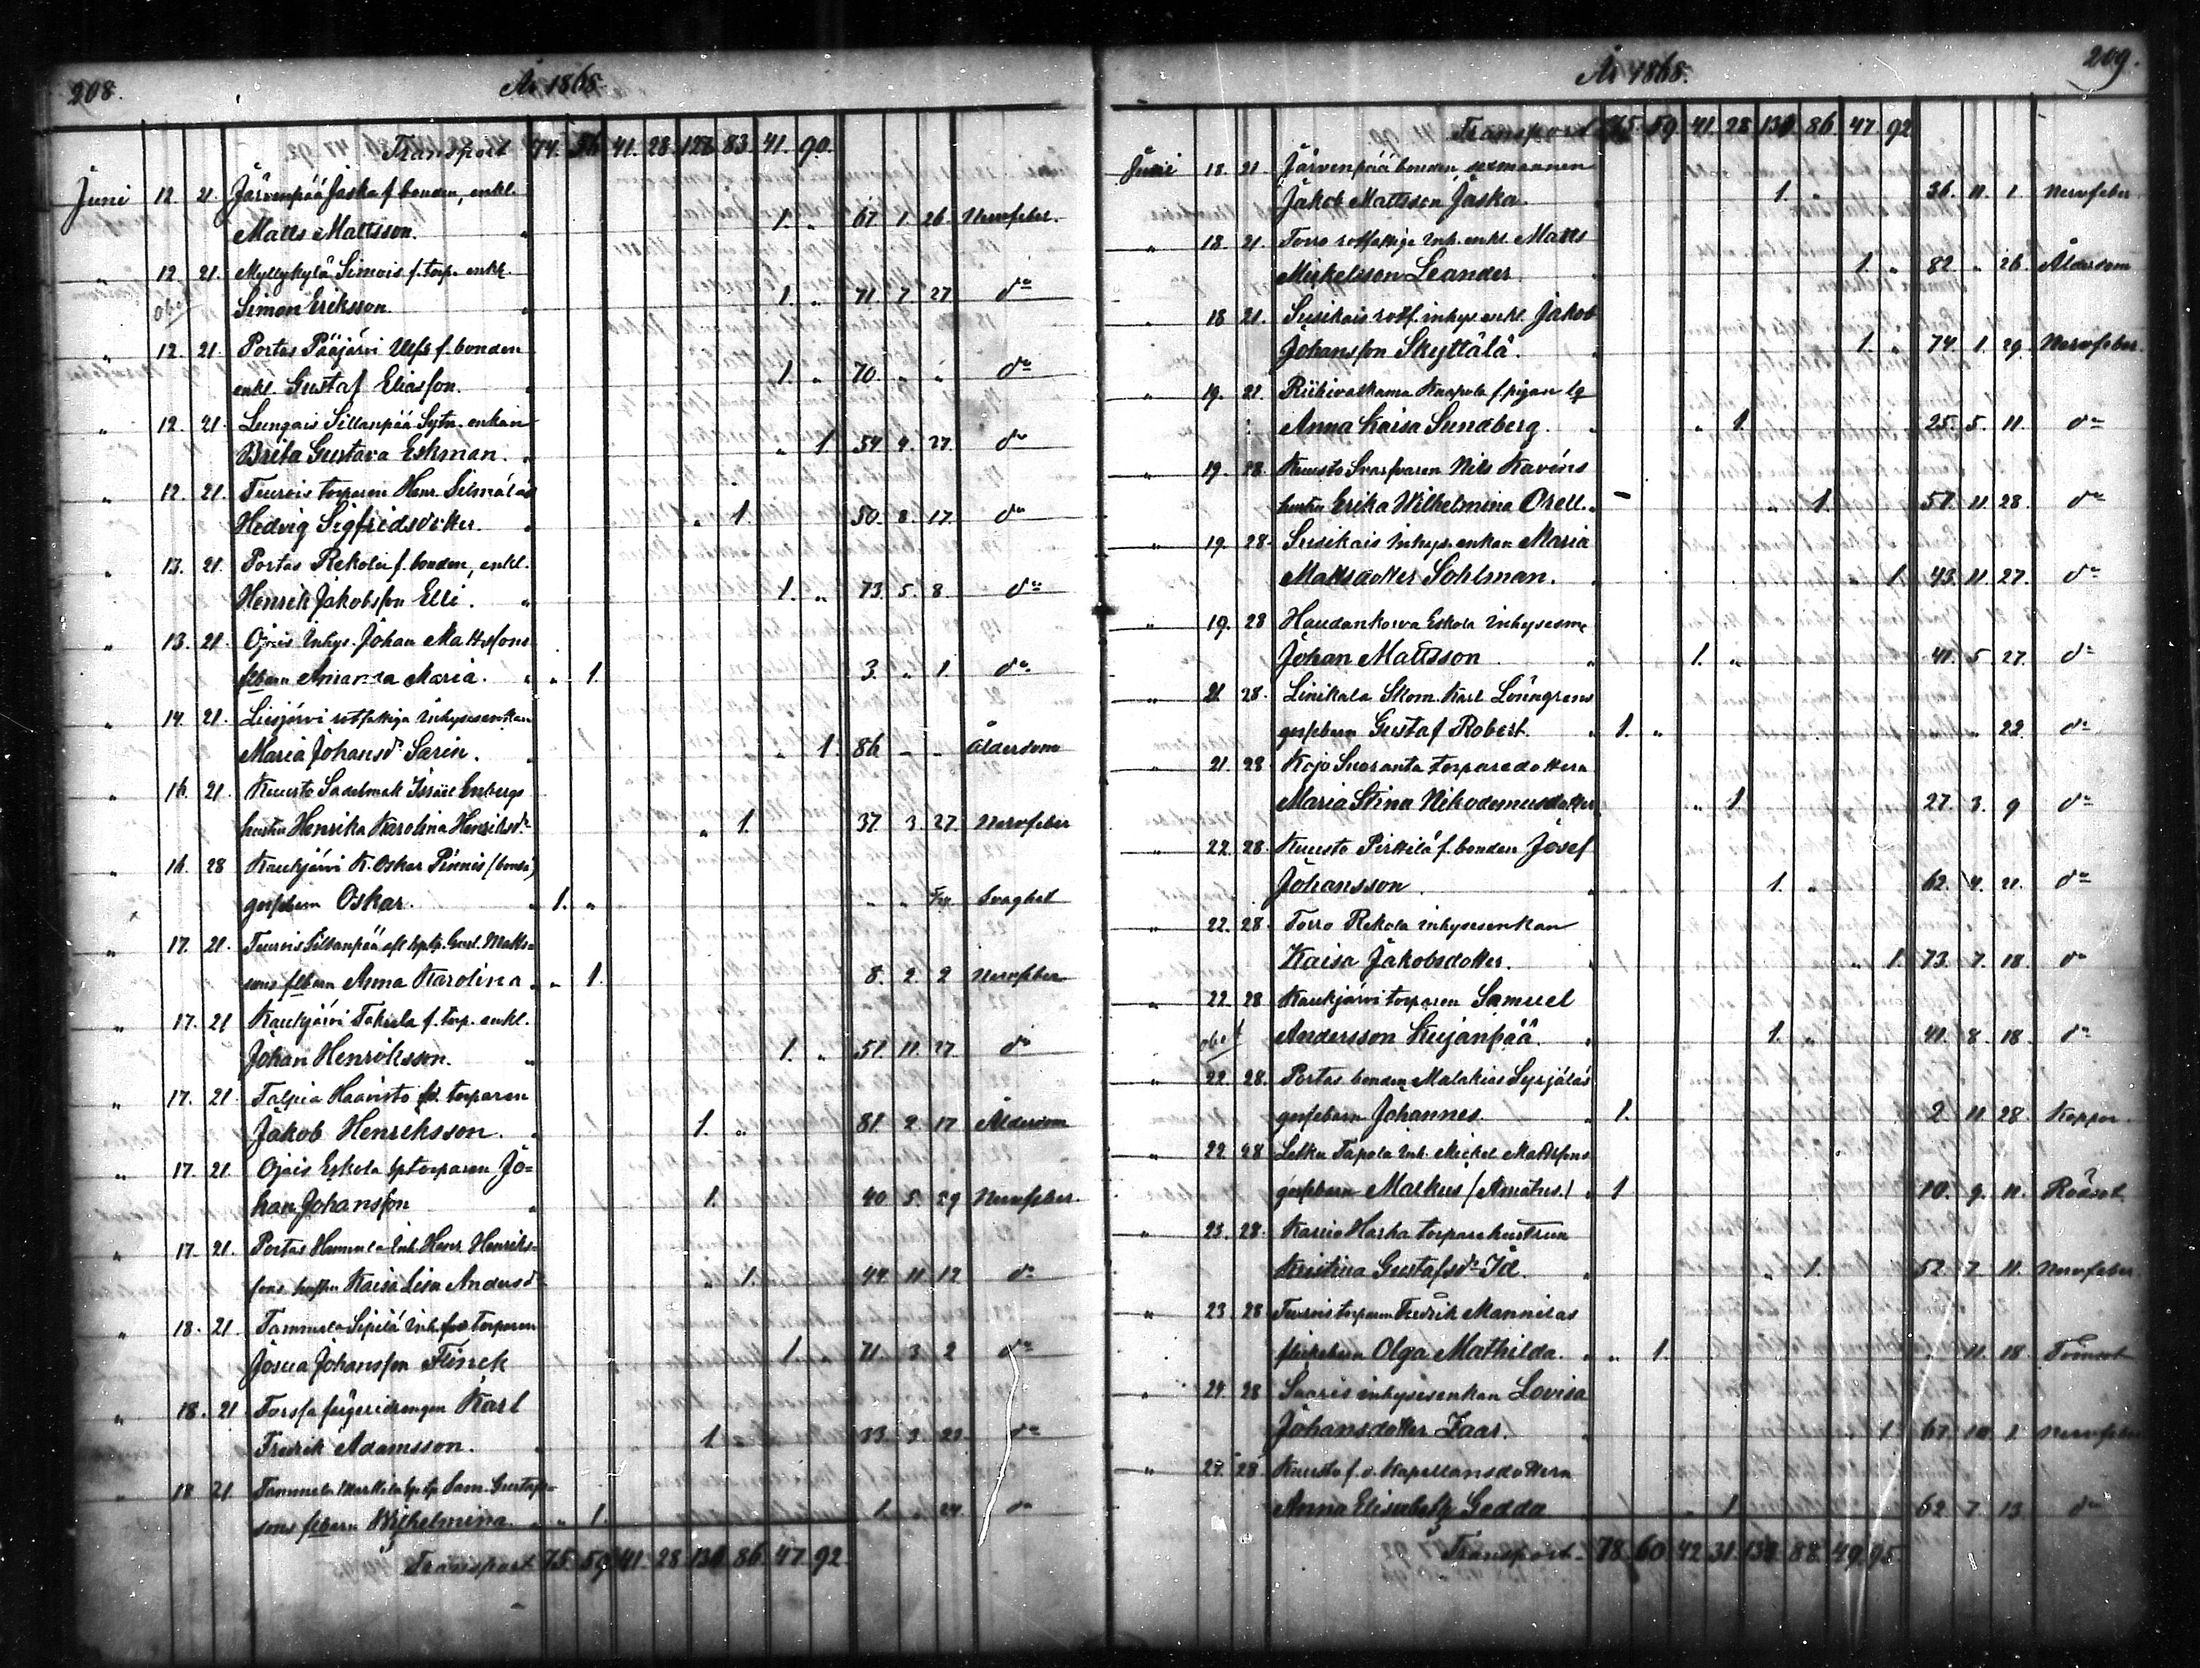 208. År 1868.
Transport 74. 56 41. 28. 128 83. 41. 90.
Juni 12 21. Järvenpää Jaska f. bonden, enkl.
Matts Mattsson. " 1. " 67 1. 26 Nervfeber.
" 12 21. Myllykylä Simois f. torp. enkl.
Simon Eriksson. " 1. " 71 7. 27 do
" 12 21. Portas Pääjärvi f. bonden
enkl. Gustaf Eliasson. " 1. " 70 " " do
" 12. 21 Lungais Sillanpää Sytn. enkan
Brita Gustava Eskman. " " 1 54 9. 27. do
" 12. 21. Teurois torparen Henr.
Hedvig Sigfridsdotter. " " 1. 50. 8. 17. do
" 13. 21. Portas Rekola f. bonden, enkl.
Henrik Jakobsson Elli. " 1. " 73. 5. 8 do
" 13. 21. Ojais Inhys. Johan Mattssons
flbarn Amanda Maria. " " 1. 3. " 1. do
" 14. 21. Liesjärvi rotfattiga Inhysesenkan
Maria Johansdr Sarin. " " 1. 86 - - Ålderdom
" 16. 21 Kuusto Sadelmak Israel Enbergs
hustru Henrika Karolina Henriksdr " 1. 37. 3. 27. Nervfeber
" 16. 28 Kaukjärvi K. Oskar
gossebarn Oskar. " 1. " " " Svaghet
" 17. 21. Teurois Sillanpää Gust. Matts=
sons flbarn Anna Karolina " " 1. 8. 2. 2 Nervfeber
" 17. 21 Kaukjärvi Tahvola f. torp. enkl.
Johan Henriksson. " 1. " 51. 11. 27 do
" 17. 21. Talpia Haavisto fd. torparen
Jakob Henriksson. " 1. " 81. 2 17 Ålderdom
" 17. 21. Ojais Eskola torparen Jo=
han Johansson " 1. 40 5. 29 Nervfeber.
" 17. 21. Portas Hummela Inh. Henr. Henriks=
sons hustru Kaisa Lisa Andersdr " 1. 44. 11. 12 do
" 18. 21. Tammela Sipilä Inh. torparen
Josua Johansson Flinck 1. " 71. 3. 2 do
" 18. 21 Forssa färgeridrengen Karl
Fredrik Adamsson. " 1 " 33. 3. 22. do
" 18 21 Tammela Sam. Gustafs=
sons flbarn Wilhelmina. " " 1. 1. " 24. do
Transport 75. 59 41. 28. 130 86. 47. 92.
År 1868. 209.
Transport 75. 59. 41. 28 130 86. 47. 92
Juni 18. 21 Järvenpää bonden, sexmannen
Jakob Mattsson Jaska. 1. " 36. 11. 1. Nervfeber.
" 18. 21. Torro rotfattige Inh. enkl. Matts
Mickelsson Leander. 1. " 82 " 26. Ålderdom
" 18 21. Susikais rotf. inhys. enkl. Jakob
Johansson Skyttälä. 1. " 74. 1. 29. Nervfeber.
" 19. 21. Riihivalkama Kaapola f. pigan lg
Anna Kaisa Sundberg. " 1. 25. 5. 11. do
" 19. 28. Kuusto Svarfvaren Nils Kavéns
hustru Erika Wilhelmina Orell. " 1. 51. 11. 28. do
" 19. 28. Susikais Inhys. enkan Maria
Mattsdotter Sohlman. " 1. 43. 11 27. do
" 19. 28 Haudankorva Eskola Inhysesm
Johan Mattsson " 1. " 41. 5 27. do
" 21. 28. Linikala Skom. Karl Lönngrens
gossebarn Gustaf Robert. " 1. " " " 22. do
" 21. 28. Kojo Suoranta torparedottern
Maria Stina Nikodemusdotter " 1. 27. 3. 9 do
" 22. 28. Kuusto Pirttilä f. bonden Josef
Johansson. 1. " 62. 4. 21. do
" 22. 28. Torro Rekola inhysesenkan
Kaisa Jakobsdotter. " 1 73. 7. 18. do
" 22. 28 Kaukjärvi torparen Samuel
Andersson Kujanpää. 1. " 41. 8. 18. do
" 22. 28. Portas bonden Malakias Syrjäläs
gossebarn Johannes. " 1. 2. 11 28 Koppor.
" 22 28 Letku Tapola Inh. Mickel Mattssons
gossebarn Markus (Amatus.) " 1 10. 9. 11. Rödsot
" 23. 28. Harha torparehustrun
Kristina Gustafsdr Id. " 1. 52. 7. 11. Nervfeber.
" 23 28 Teurois torparen Fredrik Mannilas
flickebarn Olga Mathilda. " " 1. " 11. 18. Tvinsot
" 24. 28 Saaris inhysesenkan Lovisa
Johansdotter Zaar. " 1. 67. 10. 1 Nervfeber
" 27. 28. Kuusto f. v. Kapellansdottern
Anna Elisabeth Gedda " 1 62. 7. 13. do
Transport. 78. 60. 42. 31. 130 88. 49. 95.